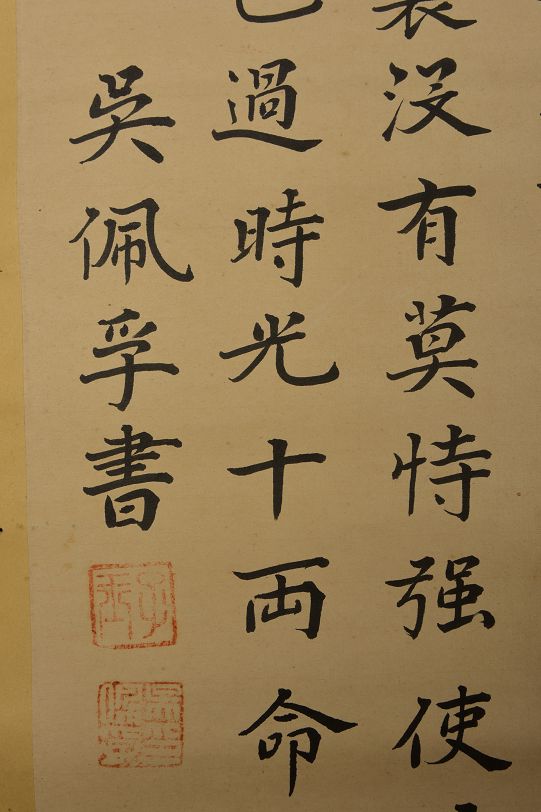 没有莫恃强使
過時光十両命
吳佩孚書
子玉